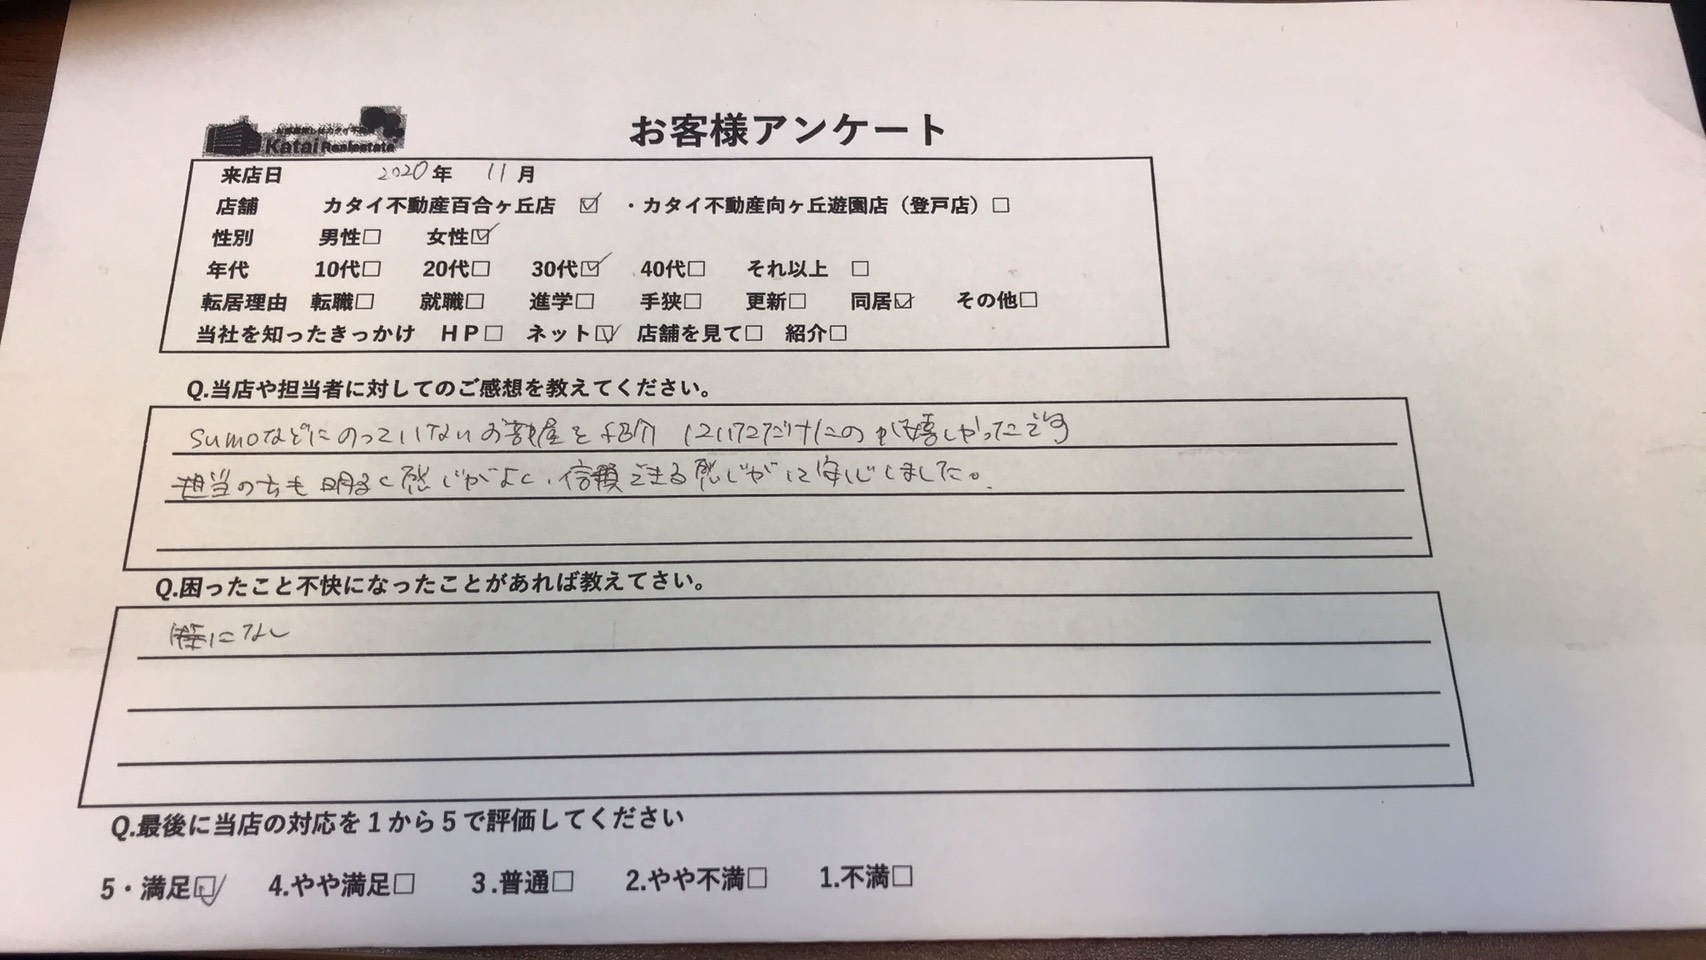 お部屋探しはカタイ不動産
Katai Realestate
お客様アンケート
来店日 2020年 11月
店舗 カタイ不動産百合ヶ丘店 ☑ ・カタイ不動産向ヶ丘遊園店（登戸店）□
性別 男性□ 女性☑
年代 10代□ 20代□ 30代☑ 40代□ それ以上 □
転居理由 転職□ 就職□ 進学□ 手狭□ 更新□ 同居☑ その他□
当社を知ったきっかけ HP□ ネット☑ 店舗を見て□ 紹介□
Q.当店や担当者に対してのご感想を教えてください。
sumoなどにのっていないお部屋を紹介していただけたのが嬉しかったです
担当の方も明るく感じがよく、信頼できる感じがして安心しました。
Q.困ったこと不快になったことがあれば教えてさい。
特になし
Q.最後に当店の対応を１から５で評価してください
5・満足☑ 4.やや満足□ 3.普通□ 2.やや不満□ 1.不満□